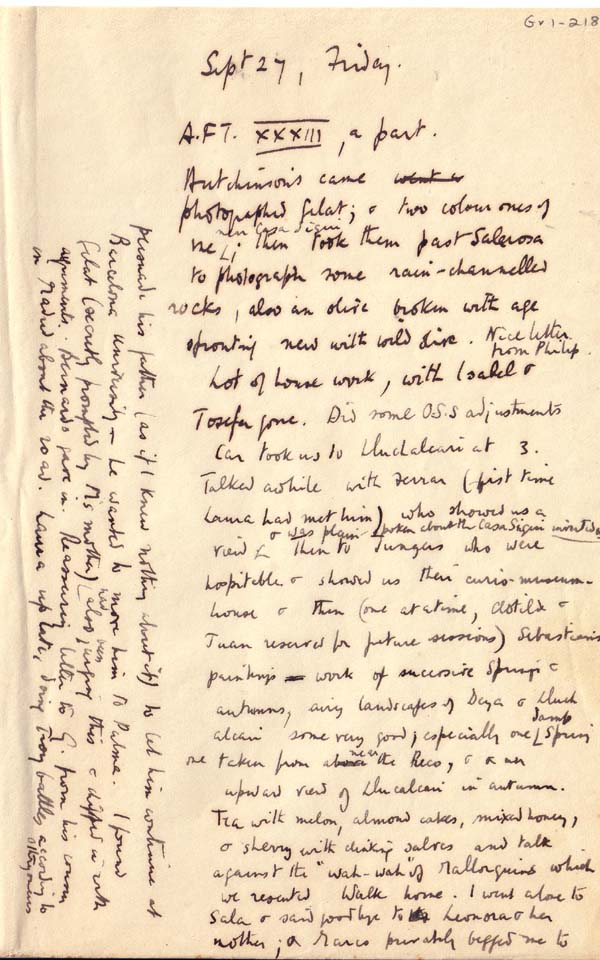 Gv1-218
Sept 27, Friday.
A.F.T. XXXIII, a part.
Hutchinson's came went
photographed Gelat; & two colour ones of
near Casa Siquier
me; then took them past Salerosa
to photograph some rain-channelled
rocks, also an olive broken with age
sprouting new with wild olive. Nice letter
from Philip.
Lot of house work, with Isabel &
Josefa gone. Did some O.S.S adjustments
Car took us to Lluchalcari at 3.
Talked awhile with Ferran (first time
Laura had met him) who showed us a
& was plain-spoken about the Casa Siquier
view Then to Jungers who were
hospitable & showed us their curio-museum-
house & then (one at a time, Clotilde &
Juan reserved for future sessions) Sebastian's
paintings work of successive Springs &
autumns, airy landscapes of Deya & Lluch
alcari some very good; especially one Spring
damp
one taken from above the Reco, &
near
upward view of Llucalcari in autumn.
Tea with melon, almond cakes, mixed honey,
& sherry with clinking salvos and talk
against the "wah-wah" of Mallorquins which
we resented Walk home. I went alone to
Sala & said goodbye to Leonora & her
mother; & Marcos privately begged me to
persuade his father (as if I knew nothing about it) to let him continue at
Barcelona university – he wanted to move him to Palma. I found
Gelat (secretly prompted by M's mother) also urging this & chipped in with
had been
arguments. Bernardo gave in. Reassuring letter to G. from his cousin
in Madrid about the road. Laura up late, doing Troy battles according to